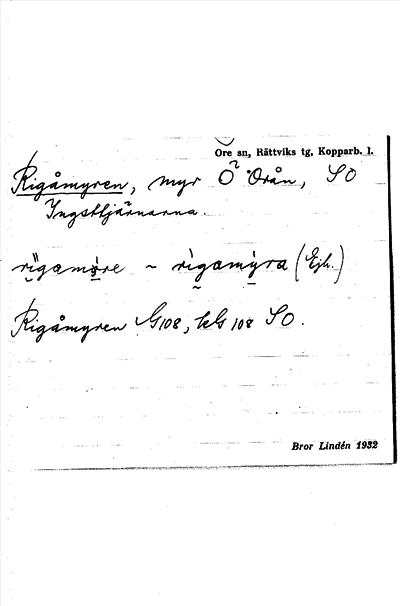 Ore sn, Rättviks tg, Kopparb. l.
Rigåmyren, myr Ö Orån, SO
Ingsttjärnarna.
rigamöre ~ rìgamỳra (Ejh.)
Rigåmyren G108, kG 108 SO.
Bror Lindén 1932